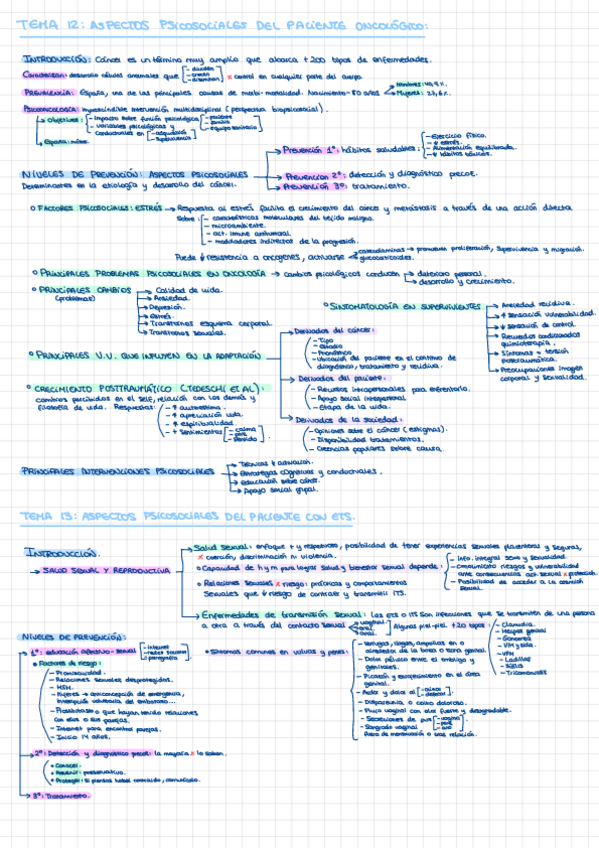 TEMA 12: ASPECTOS PSICOSOCIALES DEL PACIENTE ONCOLÓGICO:
INTRODUCCIÓN: Cáncer es un término muy amplio que abarca +200 tipos de enfermedades.
Caracterizan: desarrollo células anormales que - dividen
- crecen
- diseminan
x control en cualquier parte del cuerpo
PREVALENCIA: España, una de las principales causas de morbi-mortalidad. Nacimiento-80 años
Hombres: 
Mujeres: 
PSICOONCOLOGÍA: imprescindible intervención multidisciplinar (perspectiva biopsicosocial).
Objetivos: - impacto sobre función psicológica - paciente
- familia
- equipo sanitario
- variables psicológicas y
conductuales en - adquisición
- supervivencia
España:
Prevención 1º: hábitos saludables: - Ejercicio físico.
- ↓ estrés.
- Alimentación equilibrada.
- ↓ hábitos tóxicos.
NIVELES DE PREVENCIÓN: ASPECTOS PSICOSOCIALES
Prevención 2º: detección y diagnóstico precoz.
Determinantes en la etiología y desarrollo del cáncer.
Prevención 3º: tratamiento.
FACTORES PSICOSOCIALES: ESTRÉS → Respuesta al estrés facilita el crecimiento del cáncer y metástasis a través de una acción directa
sobre: - características moleculares del tejido maligno.
- microambiente.
- act. inmune antitumoral.
- moduladores indirectos de la progresión.
Puede ↓ resistencia a oncogenes, activarse
catecolaminas → promueven proliferación, supervivencia y migración.
glucocorticoides.
PRINCIPALES PROBLEMAS PSICOSOCIALES EN ONCOLOGÍA → cambios psicológicos conducen
deterioro personal.
desarrollo y crecimiento.
PRINCIPALES CAMBIOS
(problemas)
Calidad de vida.
Ansiedad.
Depresión.
Estrés.
Transtornos esquema corporal.
Transtornos sexuales.
SINTOMATOLOGÍA EN SUPERVIVIENTES
Ansiedad recidiva.
↑ sensación vulnerabilidad.
↓ sensación de control.
Recuerdos condicionados
quimioterapia.
Síntomas - tensión
postraumática.
Preocupaciones imagen
corporal y sexualidad.
PRINCIPALES V.V. QUE INFLUYEN EN LA ADAPTACIÓN
Derivados del cáncer:
- Tipo
- Estadio
- Pronóstico
- Ubicación del paciente en el continuo de
diagnóstico, tratamiento y recidiva.
Derivados del paciente:
- Recursos intrapersonales para enfrentarlo.
- Apoyo social interpersonal
- Etapa de la vida.
Derivados de la sociedad:
- Opiniones sobre el cáncer (estigmas).
- Disponibilidad tratamientos.
- Creencias populares sobre causa.
CRECIMIENTO POSTTRAUMÁTICO (TEDESCHI ET AL):
cambios percibidos en el self, relación con los demás y
filosofía de vida. Respuestas: - ↑ autoestima.
- ↑ apreciación vida.
- ↑ espiritualidad
- ↑ sentimientos - calma
- paz
- sentido
PRINCIPALES INTERVENCIONES PSICOSOCIALES
Técnicas ↓ activación.
Estrategias cognitivas y conductuales.
Educación sobre cáncer.
Apoyo social grupal.
TEMA 13: ASPECTOS PSICOSOCIALES DEL PACIENTE CON ETS.
INTRODUCCIÓN.
SALUD SEXUAL Y REPRODUCTIVA
Salud sexual: enfoque + y respetuoso, posibilidad de tener experiencias sexuales placenteras y seguras,
x coerción, discriminación ni violencia.
Capacidad de h y m para lograr salud y bienestar sexual depende:
- info. integral sexo y sexualidad.
- conocimiento riesgos y vulnerabilidad
ante consecuencias act. sexual x protección.
- Posibilidad de acceder a la atención
sexual.
Relaciones sexuales x riesgo: prácticas y comportamientos
sexuales que ↓ riesgo de contraer y transmitir ITS.
Enfermedades de transmisión sexual: las ETS o ITS son infecciones que se transmiten de una persona
a otra a través del contacto sexual - vaginal
- anal
- oral
Algunas piel-piel. +20 tipos: - Clamidia.
- Herpes genital
- Gonorrea
- VIH y sida.
- VPH
- Ladillas
- Sífilis
- Tricomoniasis
NIVELES DE PREVENCIÓN:
1º: educación afectivo-sexual - internet
- redes sociales
- pornografía
Factores de riesgo:
- Promiscuidad.
- Relaciones sexuales desprotegidas.
- HSH.
- Mujeres → anticoncepción de emergencia,
interrupción voluntaria del embarazo...
- Prostitutas o que hayan tenido relaciones
con ellas o sus parejas.
- Internet para encontrar parejas.
- Inicio 14 años.
Síntomas comunes en vulvas y penes:
- verrugas, llagas, ampollas en o
alrededor de la boca o zona genital.
- Dolor pélvico entre el ombligo y
genitales.
- Picazón y enrojecimiento en el área
genital.
- Ardor y dolor al - orinar
- defecar
- Dispareunia o coito doloroso.
- Flujo vaginal con olor fuerte y desagradable.
- Secreciones de pus - vagina
- pene
- ano
- Sangrado vaginal
fuera de menstruación o tras relación.
2º: Detección y diagnóstico precoz: la mayoría x lo saben.
Conocer.
Prevenir: preservativo.
Proteger: si piensas haberl contraído, comunícalo.
3º: Tratamiento.